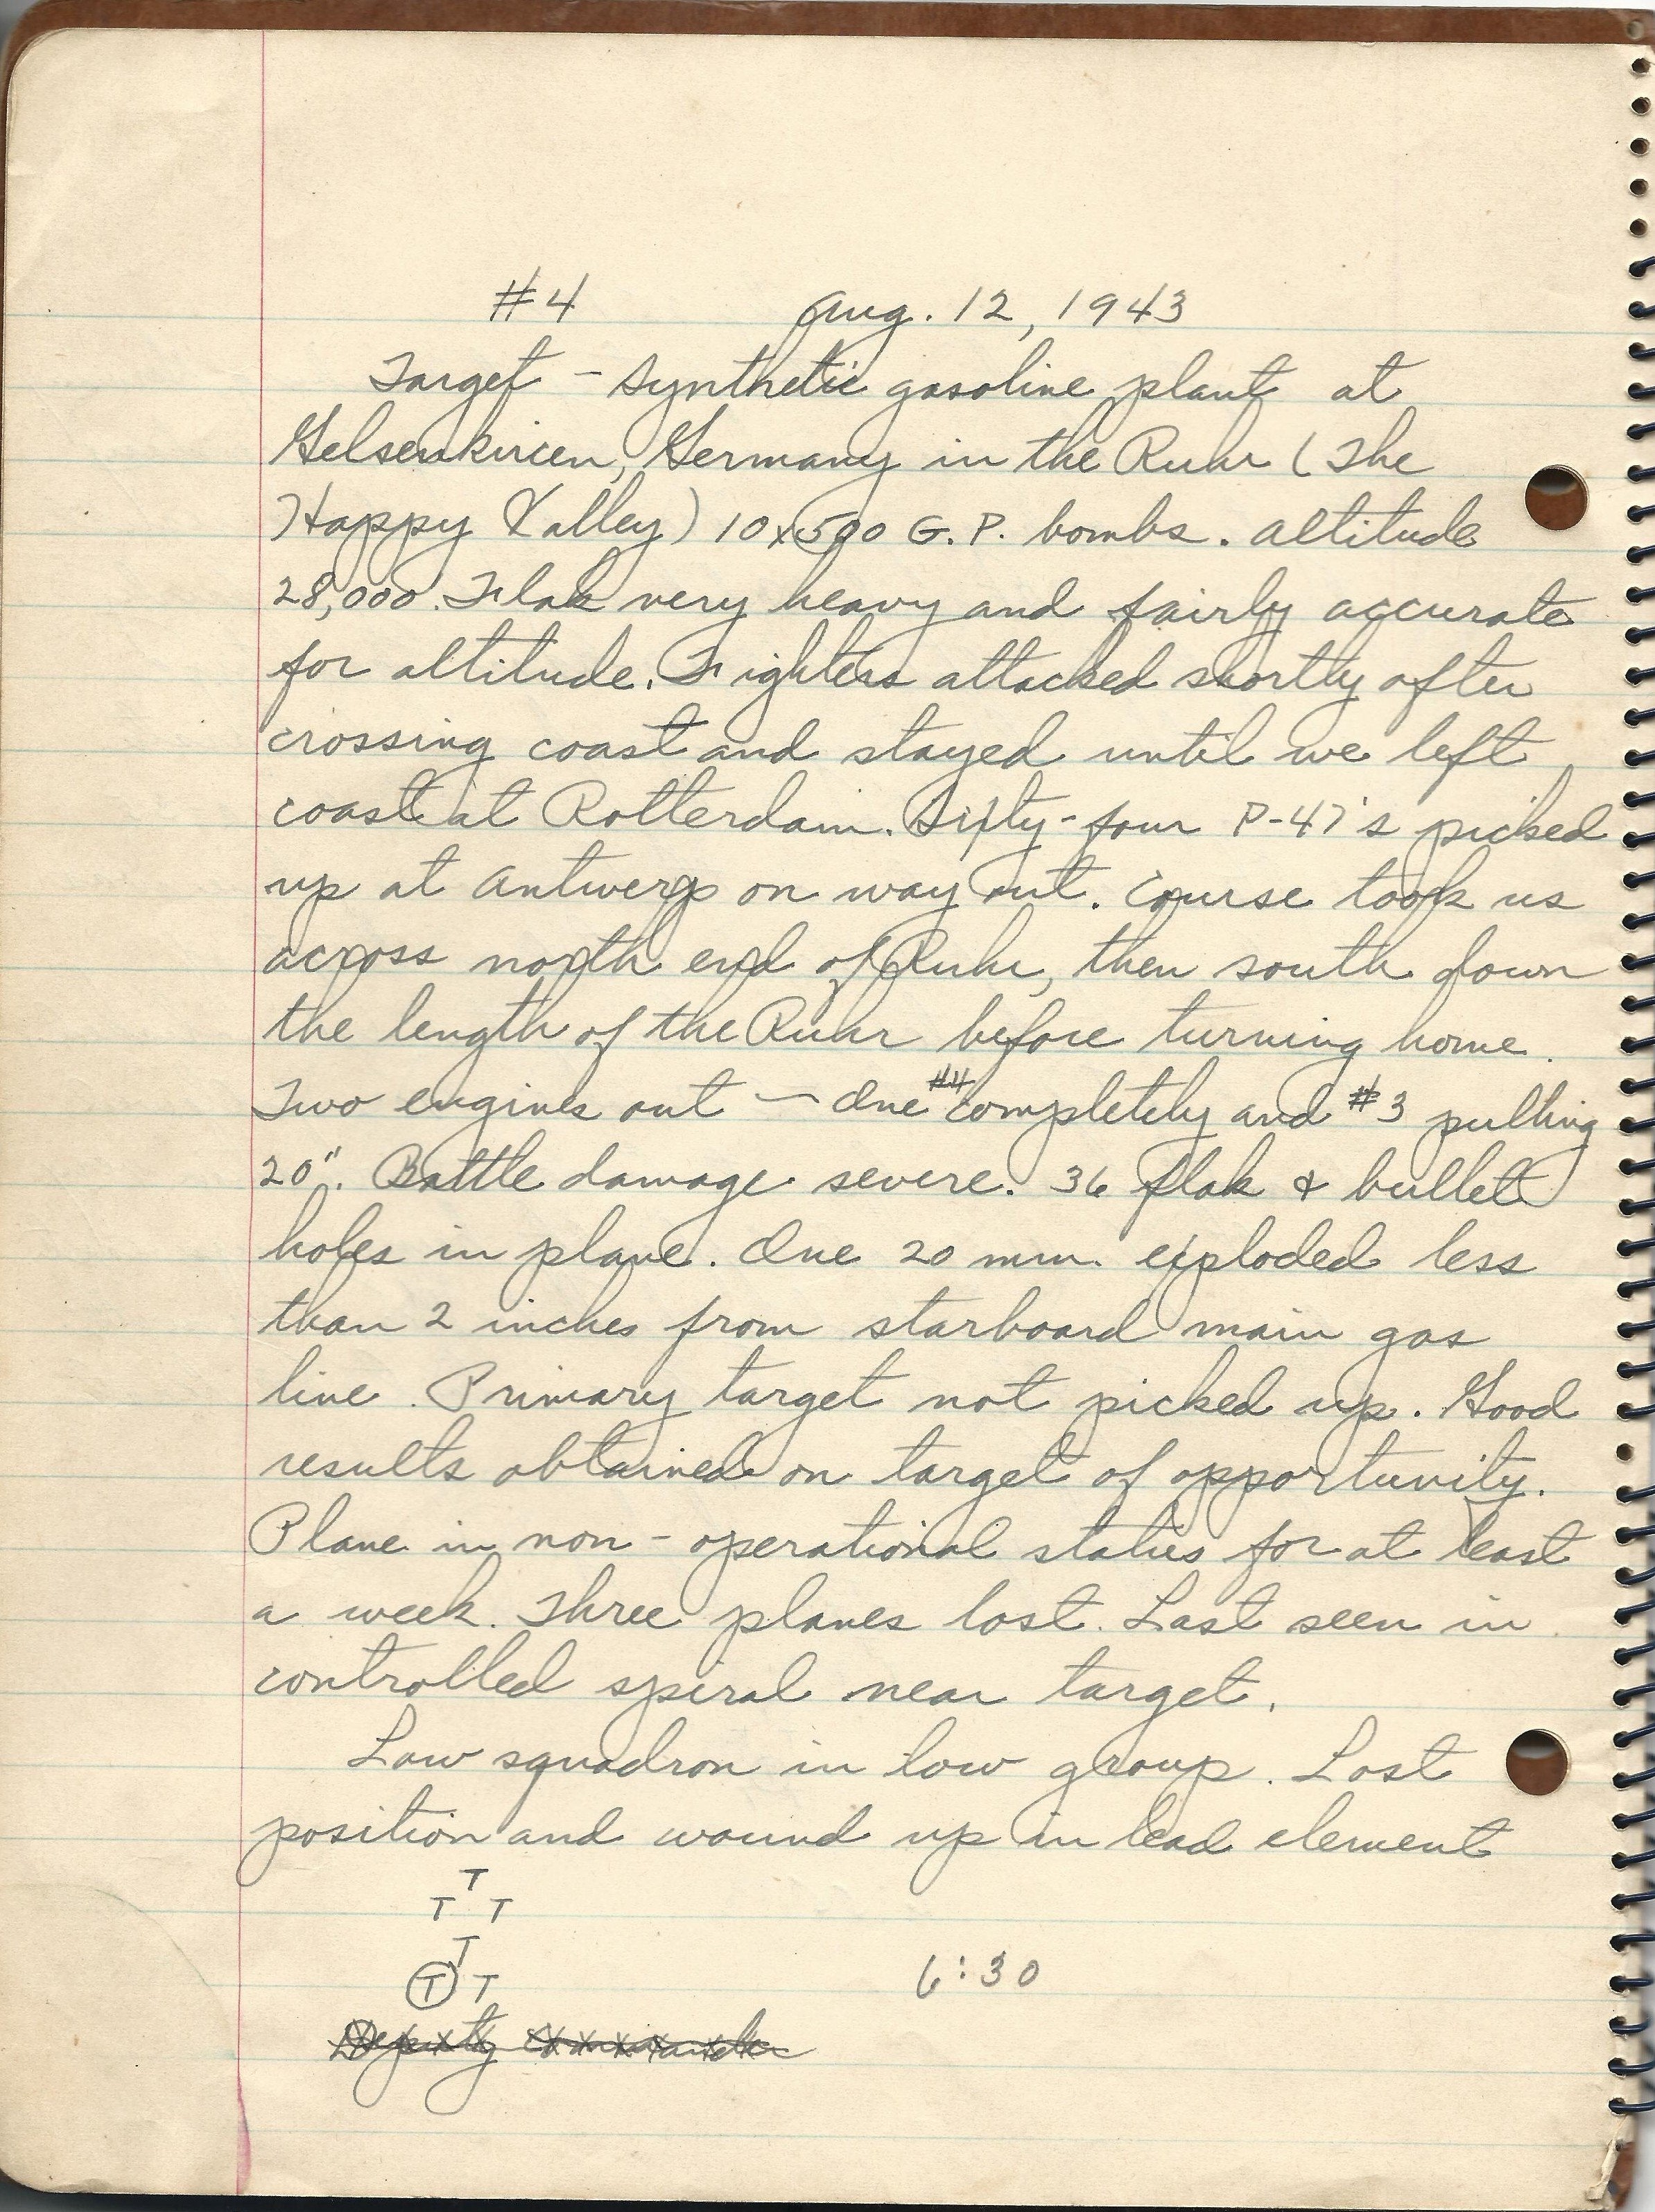 #4 Aug. 12, 1943
Target - Synthetic gasoline plant at
Gelsenkircen, Germany in the Ruhr (The
Happy Valley) 10x500 G.P. bombs. Altitude
28,000. Flak very heavy and fairly accurate
for altitude. Fighters attacked shortly after
crossing coast and stayed until we left
coast at Rotterdam. Sixty-four P-47's picked
up at Antwerp on way out. Course took us
across north end of Ruhr, then south down
the length of the Ruhr before turning home.
Two engines out — One #4 completely and #3 pulling
20". Battle damage severe. 36 flak & bullet
holes in plane. One 20 mm. exploded less
than 2 inches from starboard main gas
line. Primary target not picked up. Good
results obtained on target of opportunity.
Plane in non-operational status for at least
a week. Three planes lost. Last seen in
controlled spiral near target.
Low squadron in low group. Lost
position and wound up in lead element
T
T T
T
T T 6:30
Deputy Commander